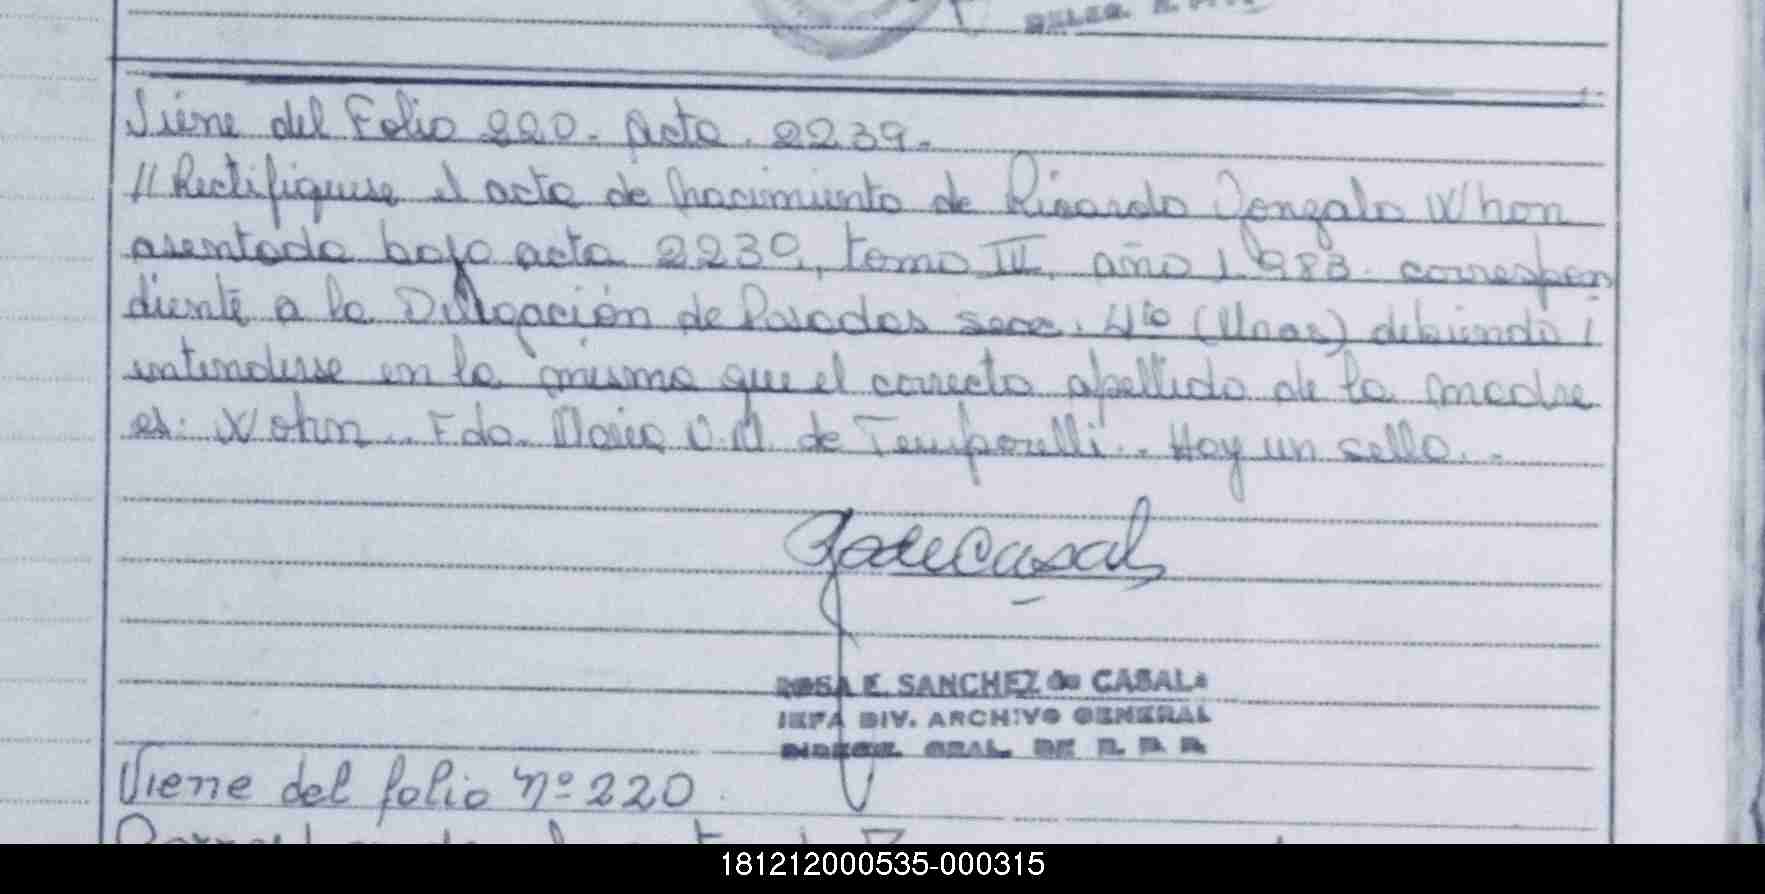 Viene del Folio 220. Acta. 2239.
// Rectifiquese el acta de Nacimiento de Ricardo Gonzalo Whon
asentada bajo acta 2239, tomo II, año 1.983. correspon
diente a la Delegación de Posadas secc. 4ta (Unas) debiendo
entenderse en la misma que el correcto apellido de la madre
es: Wohn.. Fdo. Maria de Temporelli.. Hay un sello..
ROSA E. SANCHEZ de CASALA
JEFA DIV. ARCHIVO GENERAL
GRAL. DE R. P. P.
Viene del folio nº 220.
181212000535-000315